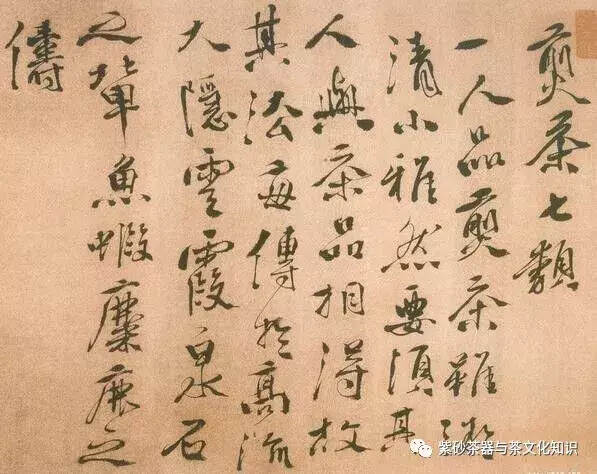 煎茶七類
一人品煎茶雖微
清小雅然要須其
人與茶品相得故
其法每傳於高流
大隱雲霞泉石
之輩魚蝦麋鹿之
儔
紫砂茶器与茶文化知识